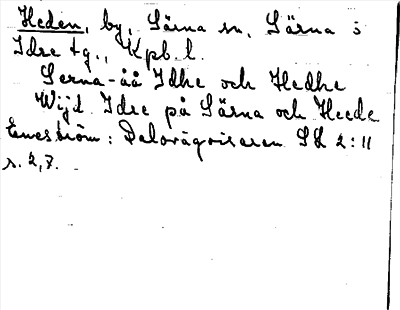 Heden, by, Särna sn, Särna o
Idre tg., Kpb. l.
Serna-åå Idhe och Hedhe
Wijd Idre på Särna och Heede
Eneström: Dalavägvisaren SH 2:11
s. 2,7.